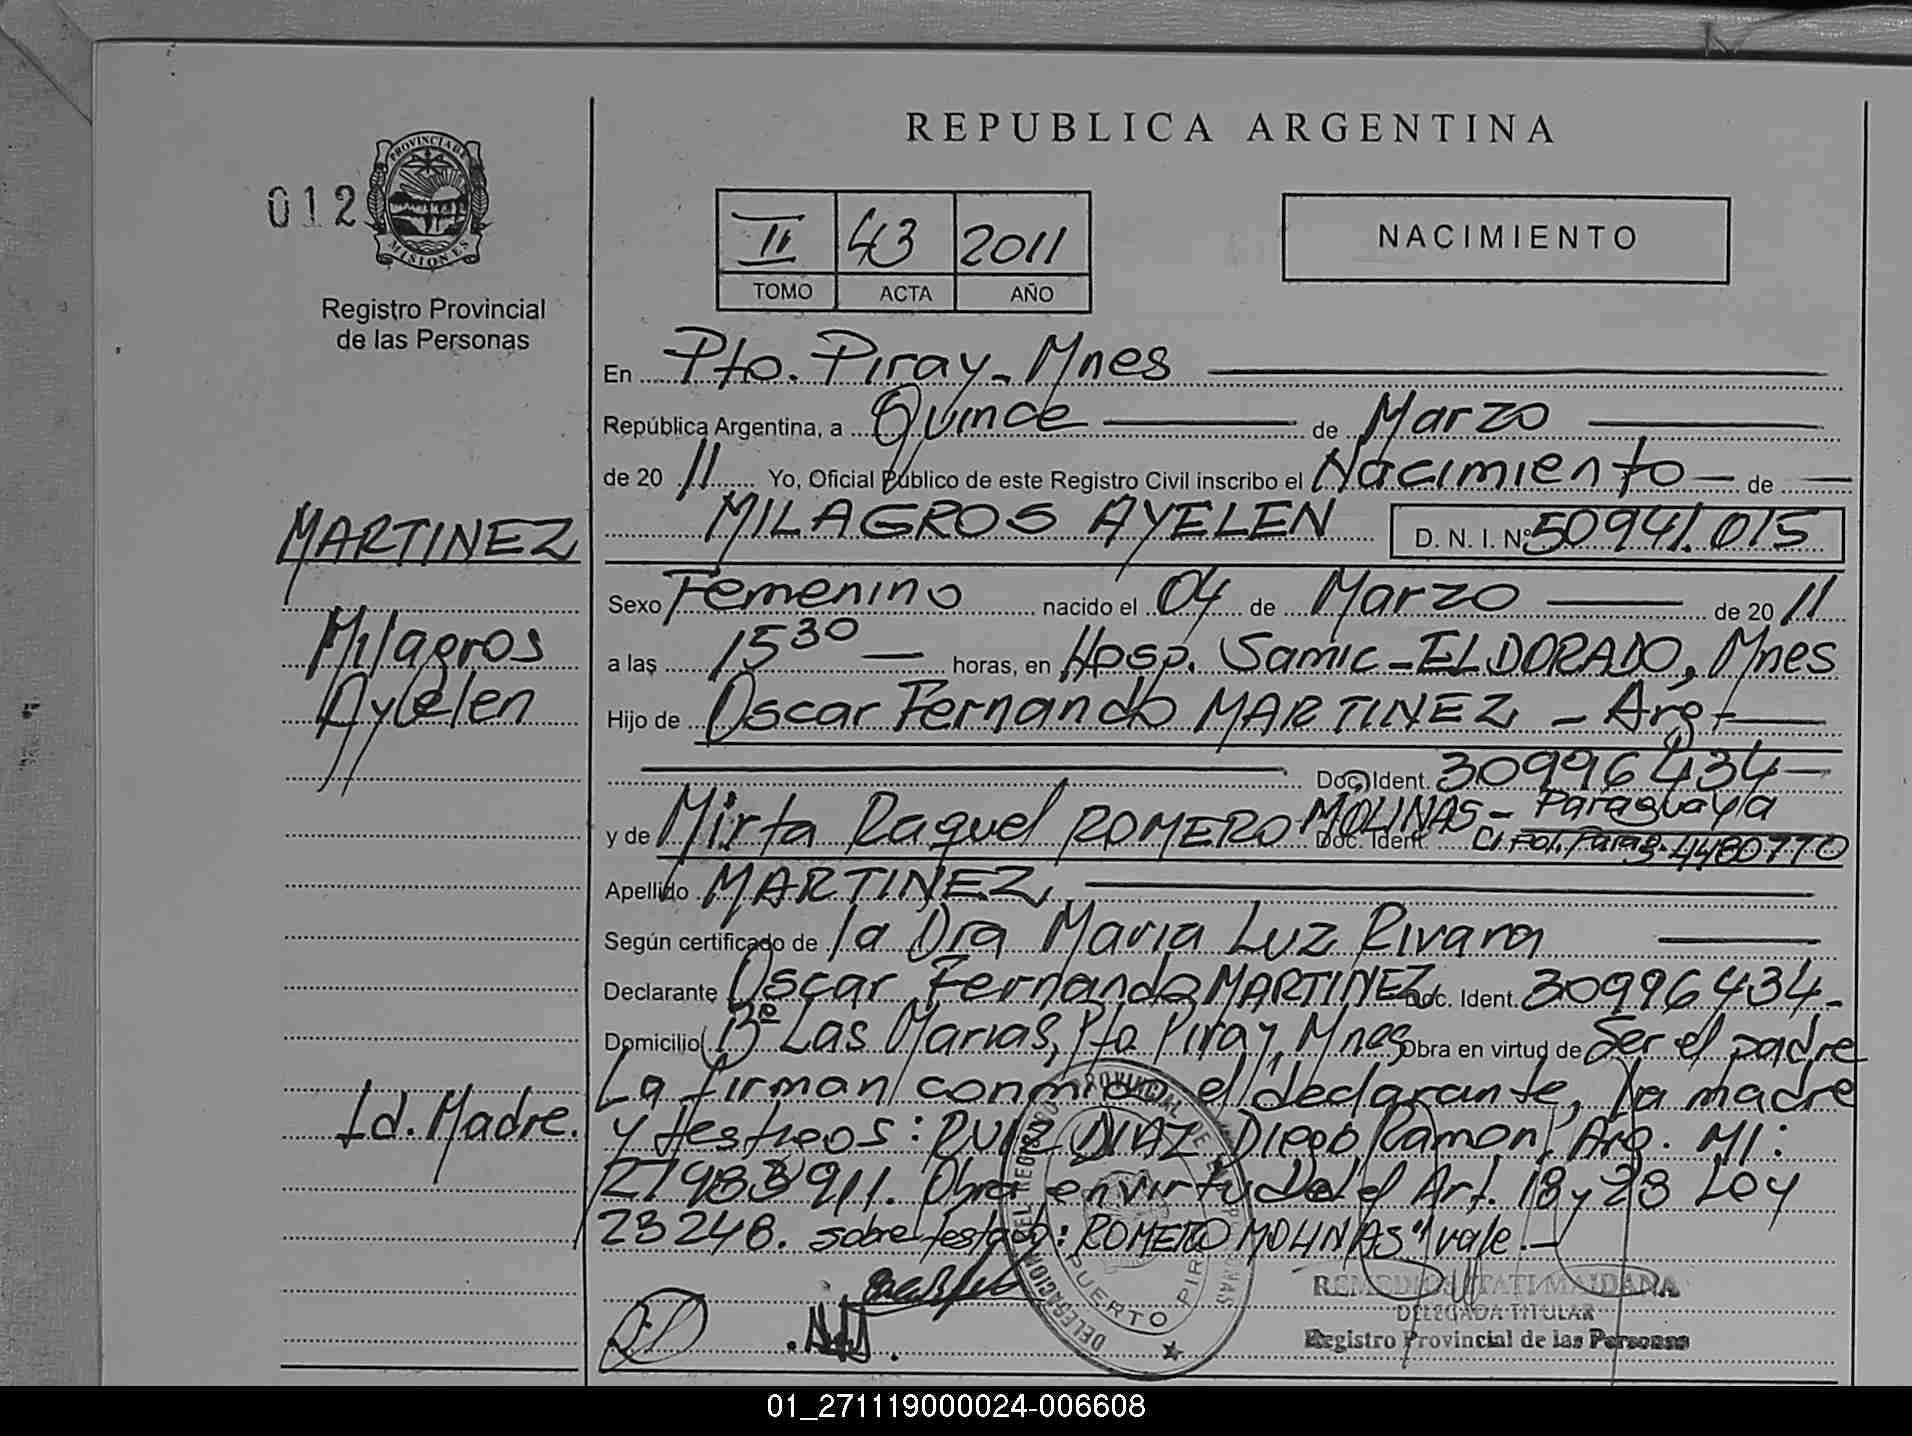 REPUBLICA ARGENTINA
012
PROVINCIA DE MISIONES
Registro Provincial
de las Personas
II 43 2011
TOMO ACTA AÑO
NACIMIENTO
En Pto. Piray - Mnes
República Argentina, a Quince de Marzo
de 20 11 Yo, Oficial Público de este Registro Civil inscribo el Nacimiento de
MILAGROS AYELEN D. N. I. Nº 50941.015
MARTINEZ
Milagros
Ayelen
Sexo Femenino nacido el 04 de Marzo de 20 11
a las 15 30 horas, en Hosp. Samic - ELDORADO, Mnes
Hijo de Oscar Fernando MARTINEZ - Arg -
Doc. Ident. 30996434
y de Mirta Raquel ROMERO MOLINAS - Paraguaya
Doc. Ident. C. Pol. Parag. 4480770
Apellido MARTINEZ
Según certificado de la Dra Maria Luz Rivara
Declarante Oscar Fernando MARTINEZ Doc. Ident. 30996434-
Domicilio Bº Las Marias, Pto Piray, Mnes Obra en virtud de Ser el padre
La firman conmigo el declarante, la madre
Id. Madre.
y testigos: RUIZ DIAZ, Diego Ramon, Arg. MI:
27983911. Obra en virtud del Art. 18 y 28 Ley
23248. sobre testado: ROMERO MOLINAS" vale.-
DELEGACION DEL REGISTRO PROVINCIAL DE LAS PERSONAS
PUERTO PIRAY
REMEDIOS ITATI MAIDANA
DELEGADA TITULAR
Registro Provincial de las Personas
01_271119000024-006608